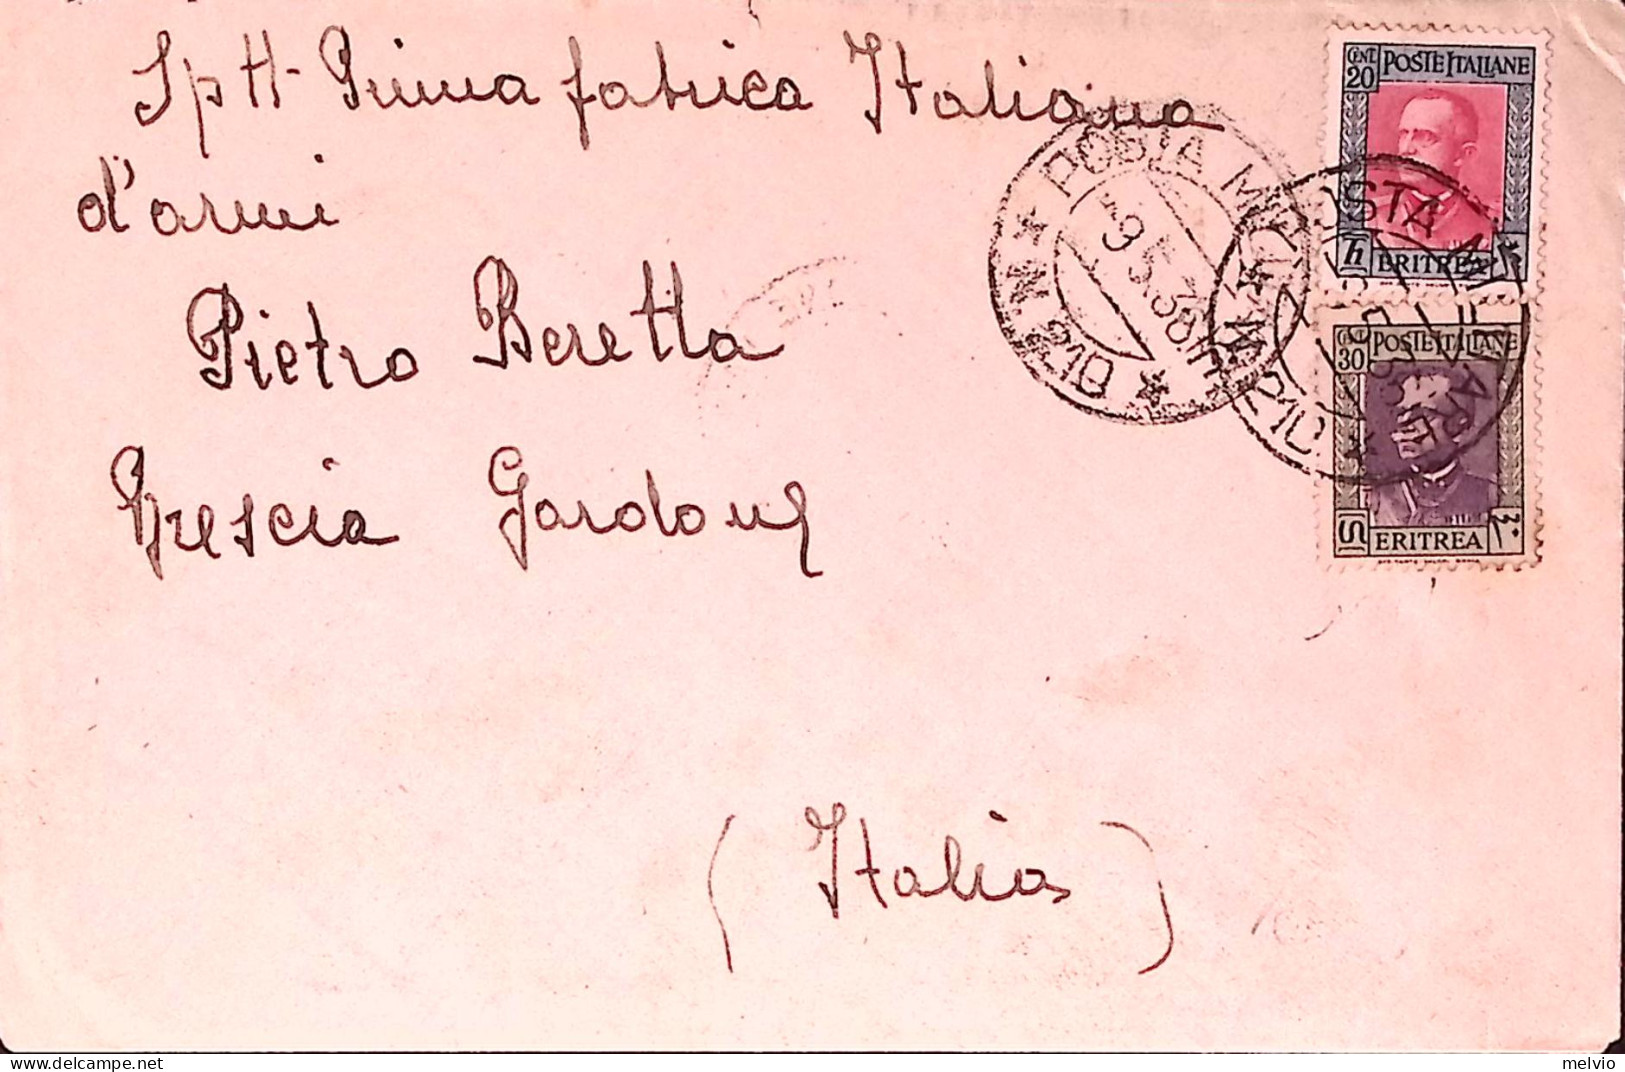 Sptt- Prima fabrica Italiana
d'armi
Pietro Beretta
Brescia Gardone
(Italia)
CENT. 20 POSTE ITALIANE
ERITREA
CENT. 30 POSTE ITALIANE
ERITREA
* POSTA MILITARE * N. 210 *
9.5.36
POSTA MILITARE * N. 210 *
melvio